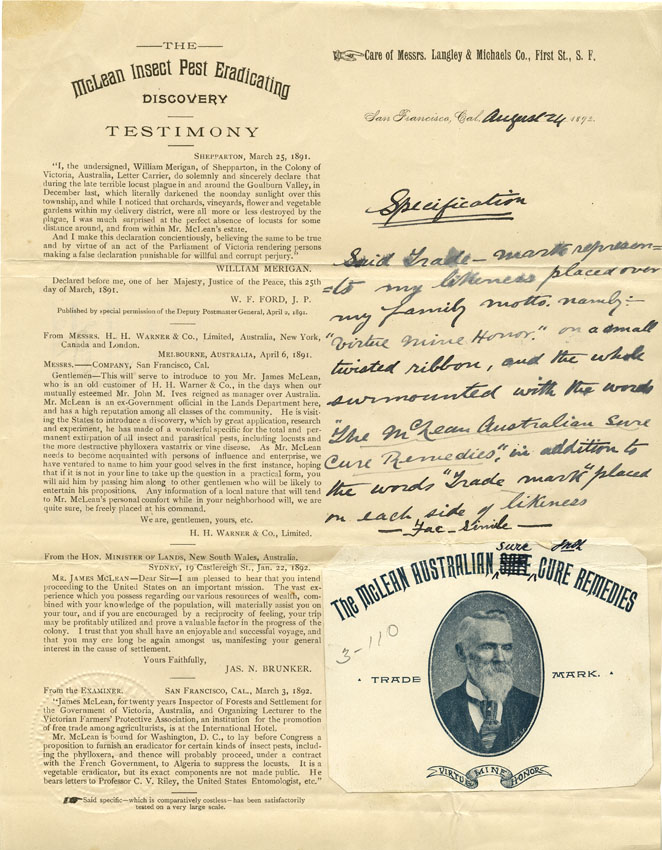 THE
McLean Insect Pest Eradicating
DISCOVERY
TESTIMONY
SHEPPARTON, March 25, 1891.
"I, the undersigned, William Merigan, of Shepparton, in the Colony of
Victoria, Australia, Letter Carrier, do solemnly and sincerely declare that
during the late terrible locust plague in and around the Goulburn Valley, in
December last, which literally darkened the noonday sunlight over this
township, and while I noticed that orchards, vineyards, flower and vegetable
gardens within my delivery district, were all more or less destroyed by the
plague, I was much surprised at the perfect absence of locusts for some
distance around, and from within Mr. McLean's estate.
And I make this declaration concientiously, believing the same to be true
and by virtue of an act of the Parliament of Victoria rendering persons
making a false declaration punishable for willful and corrupt perjury."
WILLIAM MERIGAN.
Declared before me, one of her Majesty, Justice of the Peace, this 25th
day of March, 1891.
W. F. FORD, J. P.
Published by special permission of the Deputy Postmaster General, April 2, 1891.
From MESSRS. H. H. WARNER & CO., Limited, Australia, New York,
Canada and London.
MELBOURNE, AUSTRALIA, April 6, 1891.
MESSRS.——COMPANY, San Francisco, Cal.
Gentlemen—This will serve to introduce to you Mr. James McLean,
who is an old customer of H. H. Warner & Co., in the days when our
mutually esteemed Mr. John M. Ives reigned as manager over Australia.
Mr. McLean is an ex-Government official in the Lands Department here,
and has a high reputation among all classes of the community. He is visit-
ing the States to introduce a discovery, which by great application, research
and experiment, he has made of a wonderful specific for the total and per-
manent extirpation of all insect and parasitical pests, including locusts and
the more destructive phylloxera vastatrix or vine disease. As Mr. McLean
needs to become acquainted with persons of influence and enterprise, we
have ventured to name to him your good selves in the first instance, hoping
that if it is not in your line to take up the question in a practical form, you
will aid him by passing him along to other gentlemen who will be likely to
entertain his propositions. Any information of a local nature that will tend
to Mr. McLean's personal comfort while in your neighborhood will, we are
quite sure, be freely placed at his command.
We are, gentlemen, yours, etc.
H. H. WARNER & CO., Limited.
From the HON. MINISTER OF LANDS, New South Wales, Australia.
SYDNEY, 19 Castlereigh St., Jan. 22, 1892.
MR. JAMES MCLEAN—Dear Sir—I am pleased to hear that you intend
proceeding to the United States on an important mission. The vast ex-
perience which you possess regarding our various resources of wealth, com-
bined with your knowledge of the population, will materially assist you on
your tour, and if you are encouraged by a reciprocity of feeling, your trip
may be profitably utilized and prove a valuable factor in the progress of the
colony. I trust that you shall have an enjoyable and successful voyage, and
that you may ere long be again amongst us, manifesting your general
interest in the cause of settlement.
Yours Faithfully,
JAS. N. BRUNKER.
From the EXAMINER. SAN FRANCISCO, CAL., March 3, 1892.
"James McLean, for twenty years Inspector of Forests and Settlement for
the Government of Victoria, Australia, and Organizing Lecturer to the
Victorian Farmers' Protective Association, an institution for the promotion
of free trade among agriculturists, is at the International Hotel.
Mr. McLean is bound for Washington, D. C., to lay before Congress a
proposition to furnish an eradicator for certain kinds of insect pests, includ-
ing the phylloxera, and thence will probably proceed, under a contract
with the French Government, to Algeria to suppress the locusts. It is a
vegetable eradicator, but its exact components are not made public. He
bears letters to Professor C. V. Riley, the United States Entomologist, etc."
Said specific—which is comparatively costless—has been satisfactorily
tested on a very large scale.
Care of Messrs. Langley & Michaels Co., First St., S. F.
San Francisco, Cal. August 24 1892.
Specification
Said Trade-mark represen=
=ts my likeness placed over
my family motto, namely:-
"Virtue Mine Honor." on a small
twisted ribbon, and the whole
surmounted with the words
"The McLean Australian Sure
Cure Remedies", in addition to
the words "Trade mark" placed
on each side of likeness
— Fac-Simile —
sure
The McLEAN AUSTRALIAN CURE REMEDIES
3-110
TRADE MARK.
VIRTUE MINE HONOR